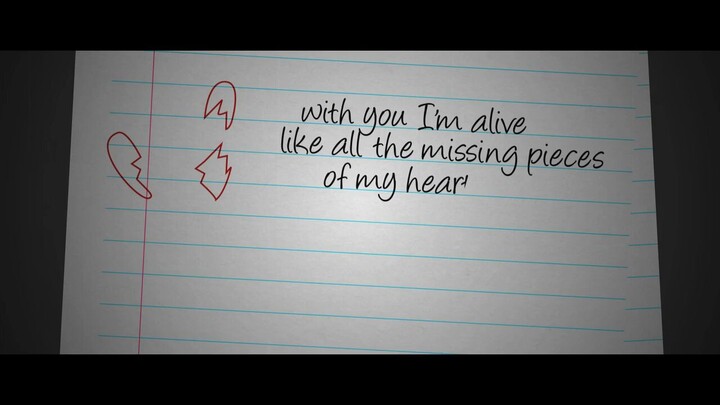 with you I'm alive
like all the missing pieces
of my hear